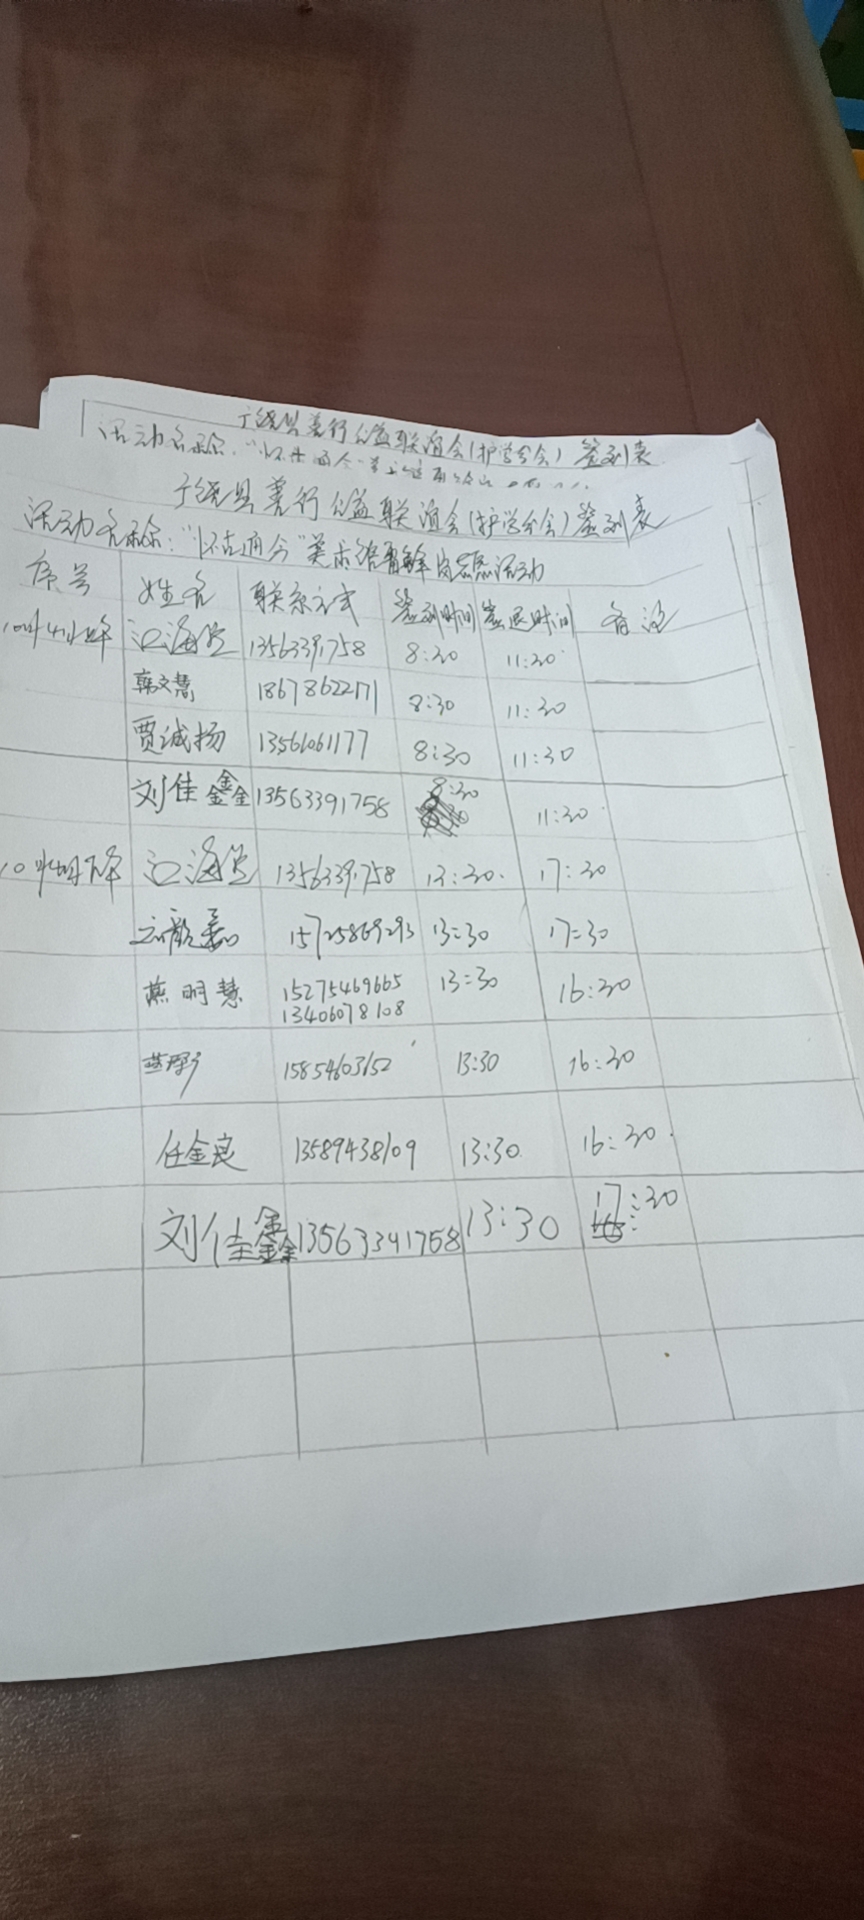 广饶县善行公益联谊会(护学分会)签到表
活动名称:"怀古通今
广饶县善行公益联谊会(护学分会)签到表
活动名称:"怀古通今"美术馆 活动
序号 姓名 联系方式 签到时间 签退时间 备注
10月4日上午 13563391758 8:30 11:30
韩文慧 18678622171 8:30 11:30
贾诚扬 13561061177 8:30 11:30
刘佳鑫 13563391758 8:30 11:30
10月4日下午 13563391758 13:30 17:30
15725869293 13:30 17:30
燕明慧 15275469665 13:30 16:30
13406078108
15854603152 13:30 16:30
任金良 13589438109 13:30 16:30
刘佳鑫 13563391758 13:30 17:30